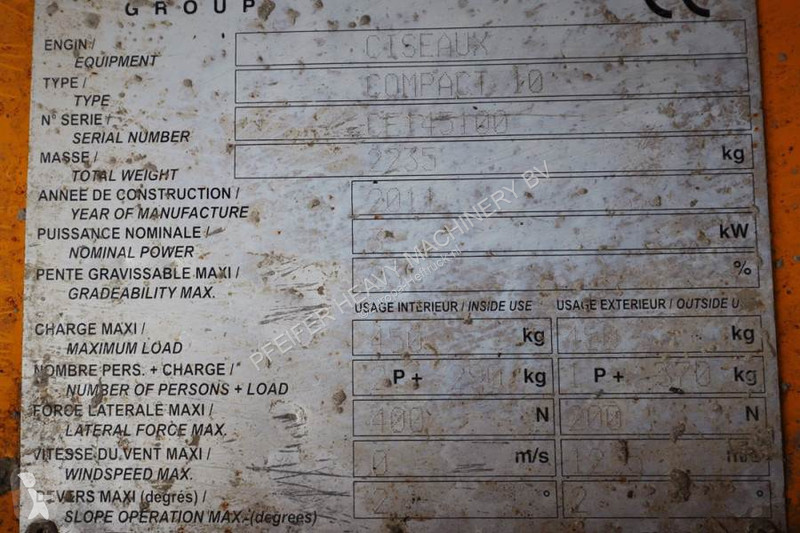 GROUP
ENGIN / CISEAUX
EQUIPMENT
TYPE / COMPACT 10
TYPE
N° SERIE /
SERIAL NUMBER
MASSE / 2235 kg
TOTAL WEIGHT
ANNEE DE CONSTRUCTION / 2011
YEAR OF MANUFACTURE
PUISSANCE NOMINALE / kW
NOMINAL POWER
PENTE GRAVISSABLE MAXI / %
GRADEABILITY MAX.
USAGE INTERIEUR / INSIDE USE USAGE EXTERIEUR / OUTSIDE U
CHARGE MAXI / 450 kg kg
MAXIMUM LOAD
NOMBRE PERS. + CHARGE / P + 290 kg 1 P + 370 kg
NUMBER OF PERSONS + LOAD
FORCE LATERALE MAXI / 400 N 200 N
LATERAL FORCE MAX.
VITESSE DU VENT MAXI / 0 m/s m/s
WINDSPEED MAX.
DEVERS MAXI (degrés) / 2 ° 2 °
SLOPE OPERATION MAX.-(degrees)
PFEIFER HEAVY MACHINERY BV